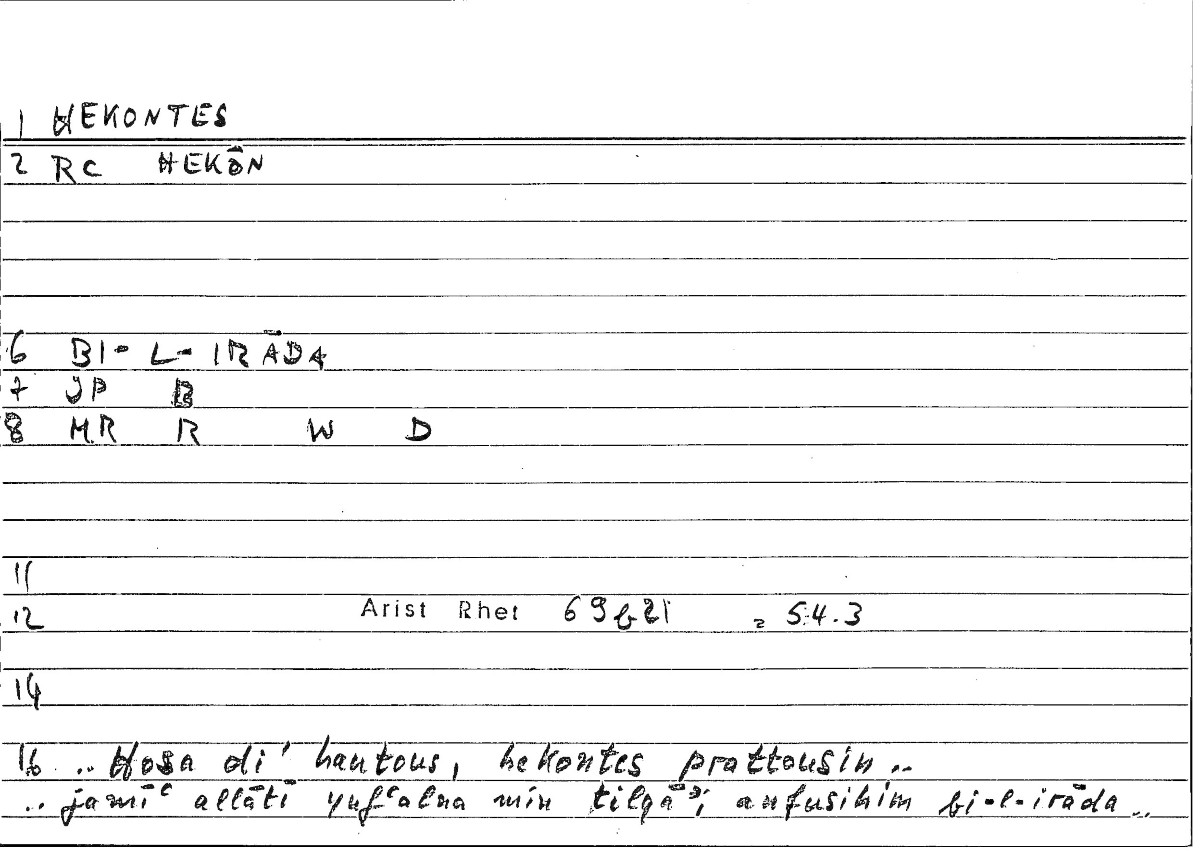 1 HEKONTES
2 RC HEKŌN
6 BI-L-IRĀDA
7 JP B
8 MR R W D
11
12 Arist Rhet 69b21 = 54.3
14
16 .. Hosa di' hautous, hekontes prattousin ..
.. jamīʿ allātī yufʿalna min tilqāʾi anfusihim bi-l-irāda ..